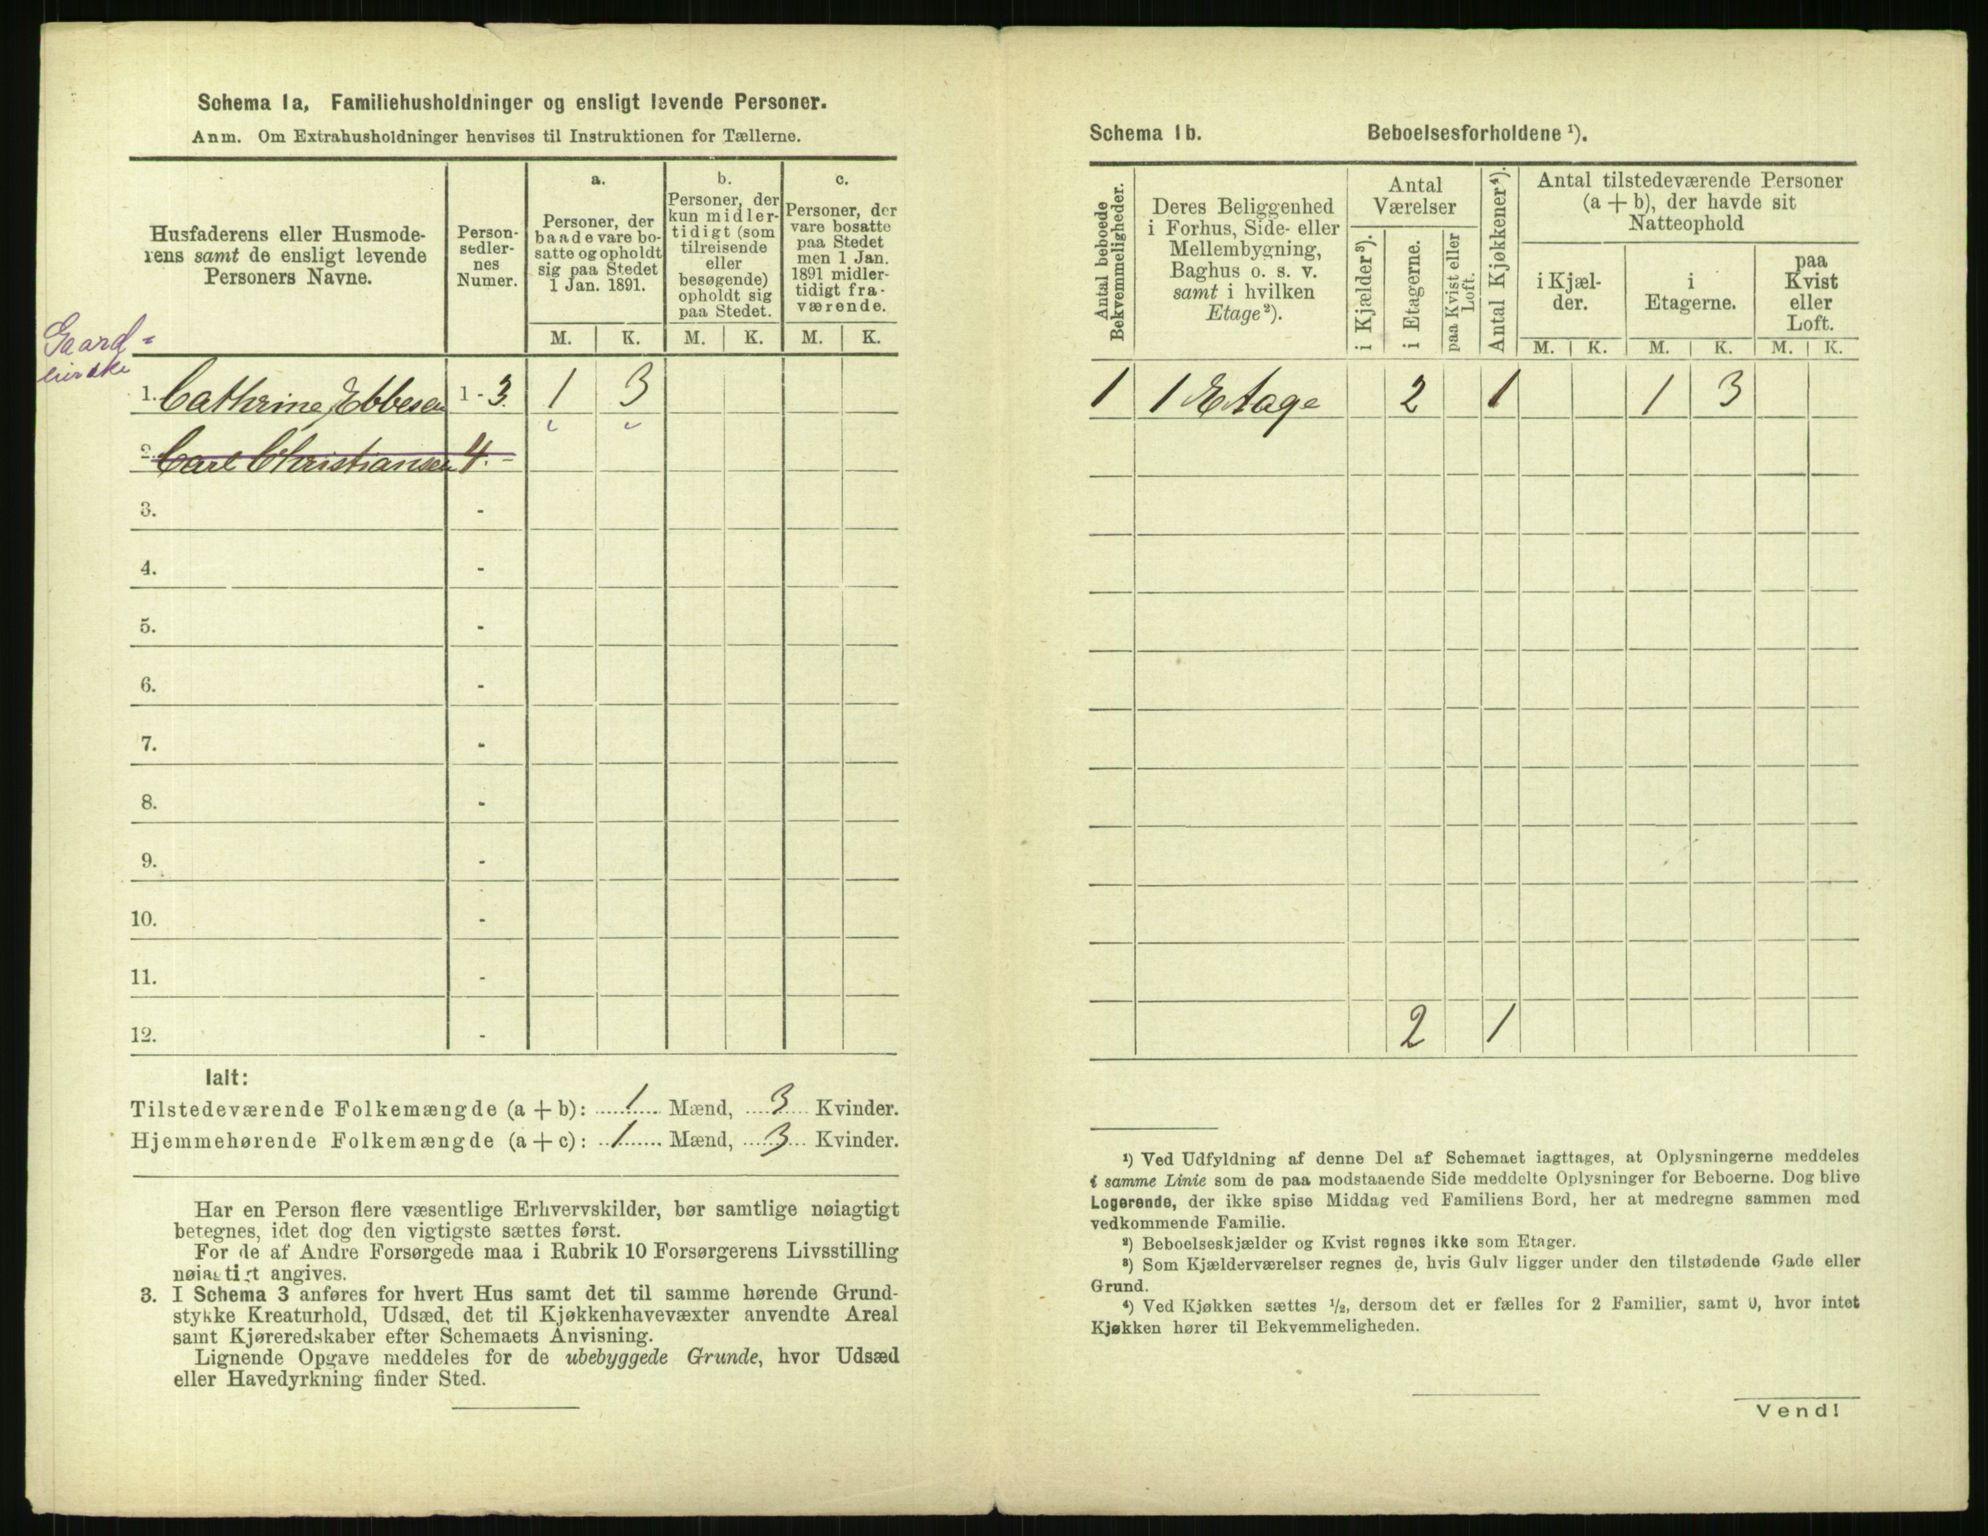 Schema 1a, Familiehusholdninger og ensligt levende Personer.
Anm. Om Extrahusholdninger henvises til Instruktionen for Tællerne.
Husfaderens eller Husmode-
rens samt de ensligt levende
Personers Navne.
Person-
sedler-
nes
Numer.
a.
Personer, der
baade vare bo-
satte og opholdt
sig paa Stedet
1 Jan. 1891.
b.
Personer, der
kun midler-
tidigt (som
tilreisende
eller
besøgende)
opholdt sig
paa Stedet.
c.
Personer, der
vare bosatte
paa Stedet
men 1 Jan.
1891 midler-
tidigt fra-
værende.
M. K. M. K. M. K.
Gaard=
1. Cathrine Ebbesen 1 - 3. 1 3
2. Carl Christiansen 4. -
3. -
4. -
5. -
6. -
7. -
8. -
9. -
10. -
11. -
12. -
Ialt:
Tilstedeværende Folkemængde (a + b): 1 Mænd, 3 Kvinder.
Hjemmehørende Folkemængde (a + c): 1 Mænd, 3 Kvinder.
Har en Person flere væsentlige Erhvervskilder, bør samtlige nøiagtigt
betegnes, idet dog den vigtigste sættes først.
For de af Andre Forsørgede maa i Rubrik 10 Forsørgerens Livsstilling
nøiagtigt angives.
3. I Schema 3 anføres for hvert Hus samt det til samme hørende Grund-
stykke Kreaturhold, Udsæd, det til Kjøkkenhavevæxter anvendte Areal
samt Kjøreredskaber efter Schemaets Anvisning.
Lignende Opgave meddeles for de ubebyggede Grunde, hvor Udsæd
eller Havedyrkning finder Sted.
Schema 1b. Beboelsesforholdene ¹).
Antal beboede
Bekvemmeligheder.
Deres Beliggenhed
i Forhus, Side- eller
Mellembygning,
Baghus o. s. v.
samt i hvilken
Etage²).
Antal
Værelser
i Kjælder³).
i Etagerne.
paa Kvist eller
Loft.
Antal Kjøkkener⁴).
Antal tilstedeværende Personer
(a + b), der havde sit
Natteophold
i Kjæl-
der.
i
Etagerne.
paa
Kvist
eller
Loft.
M. K. M. K. M. K.
1 1 Etage 2 1 1 3
2 1
¹) Ved Udfyldning af denne Del af Schemaet iagttages, at Oplysningerne meddeles
i samme Linie som de paa modstaaende Side meddelte Oplysninger for Beboerne. Dog blive
Logerende, der ikke spise Middag ved Familiens Bord, her at medregne sammen med
vedkommende Familie.
²) Beboelseskjælder og Kvist regnes ikke som Etager.
³) Som Kjælderværelser regnes de, hvis Gulv ligger under den tilstødende Gade eller
Grund.
⁴) Ved Kjøkken sættes ½, dersom det er fælles for 2 Familier, samt 0, hvor intet
Kjøkken hører til Bekvemmeligheden.
Vend!